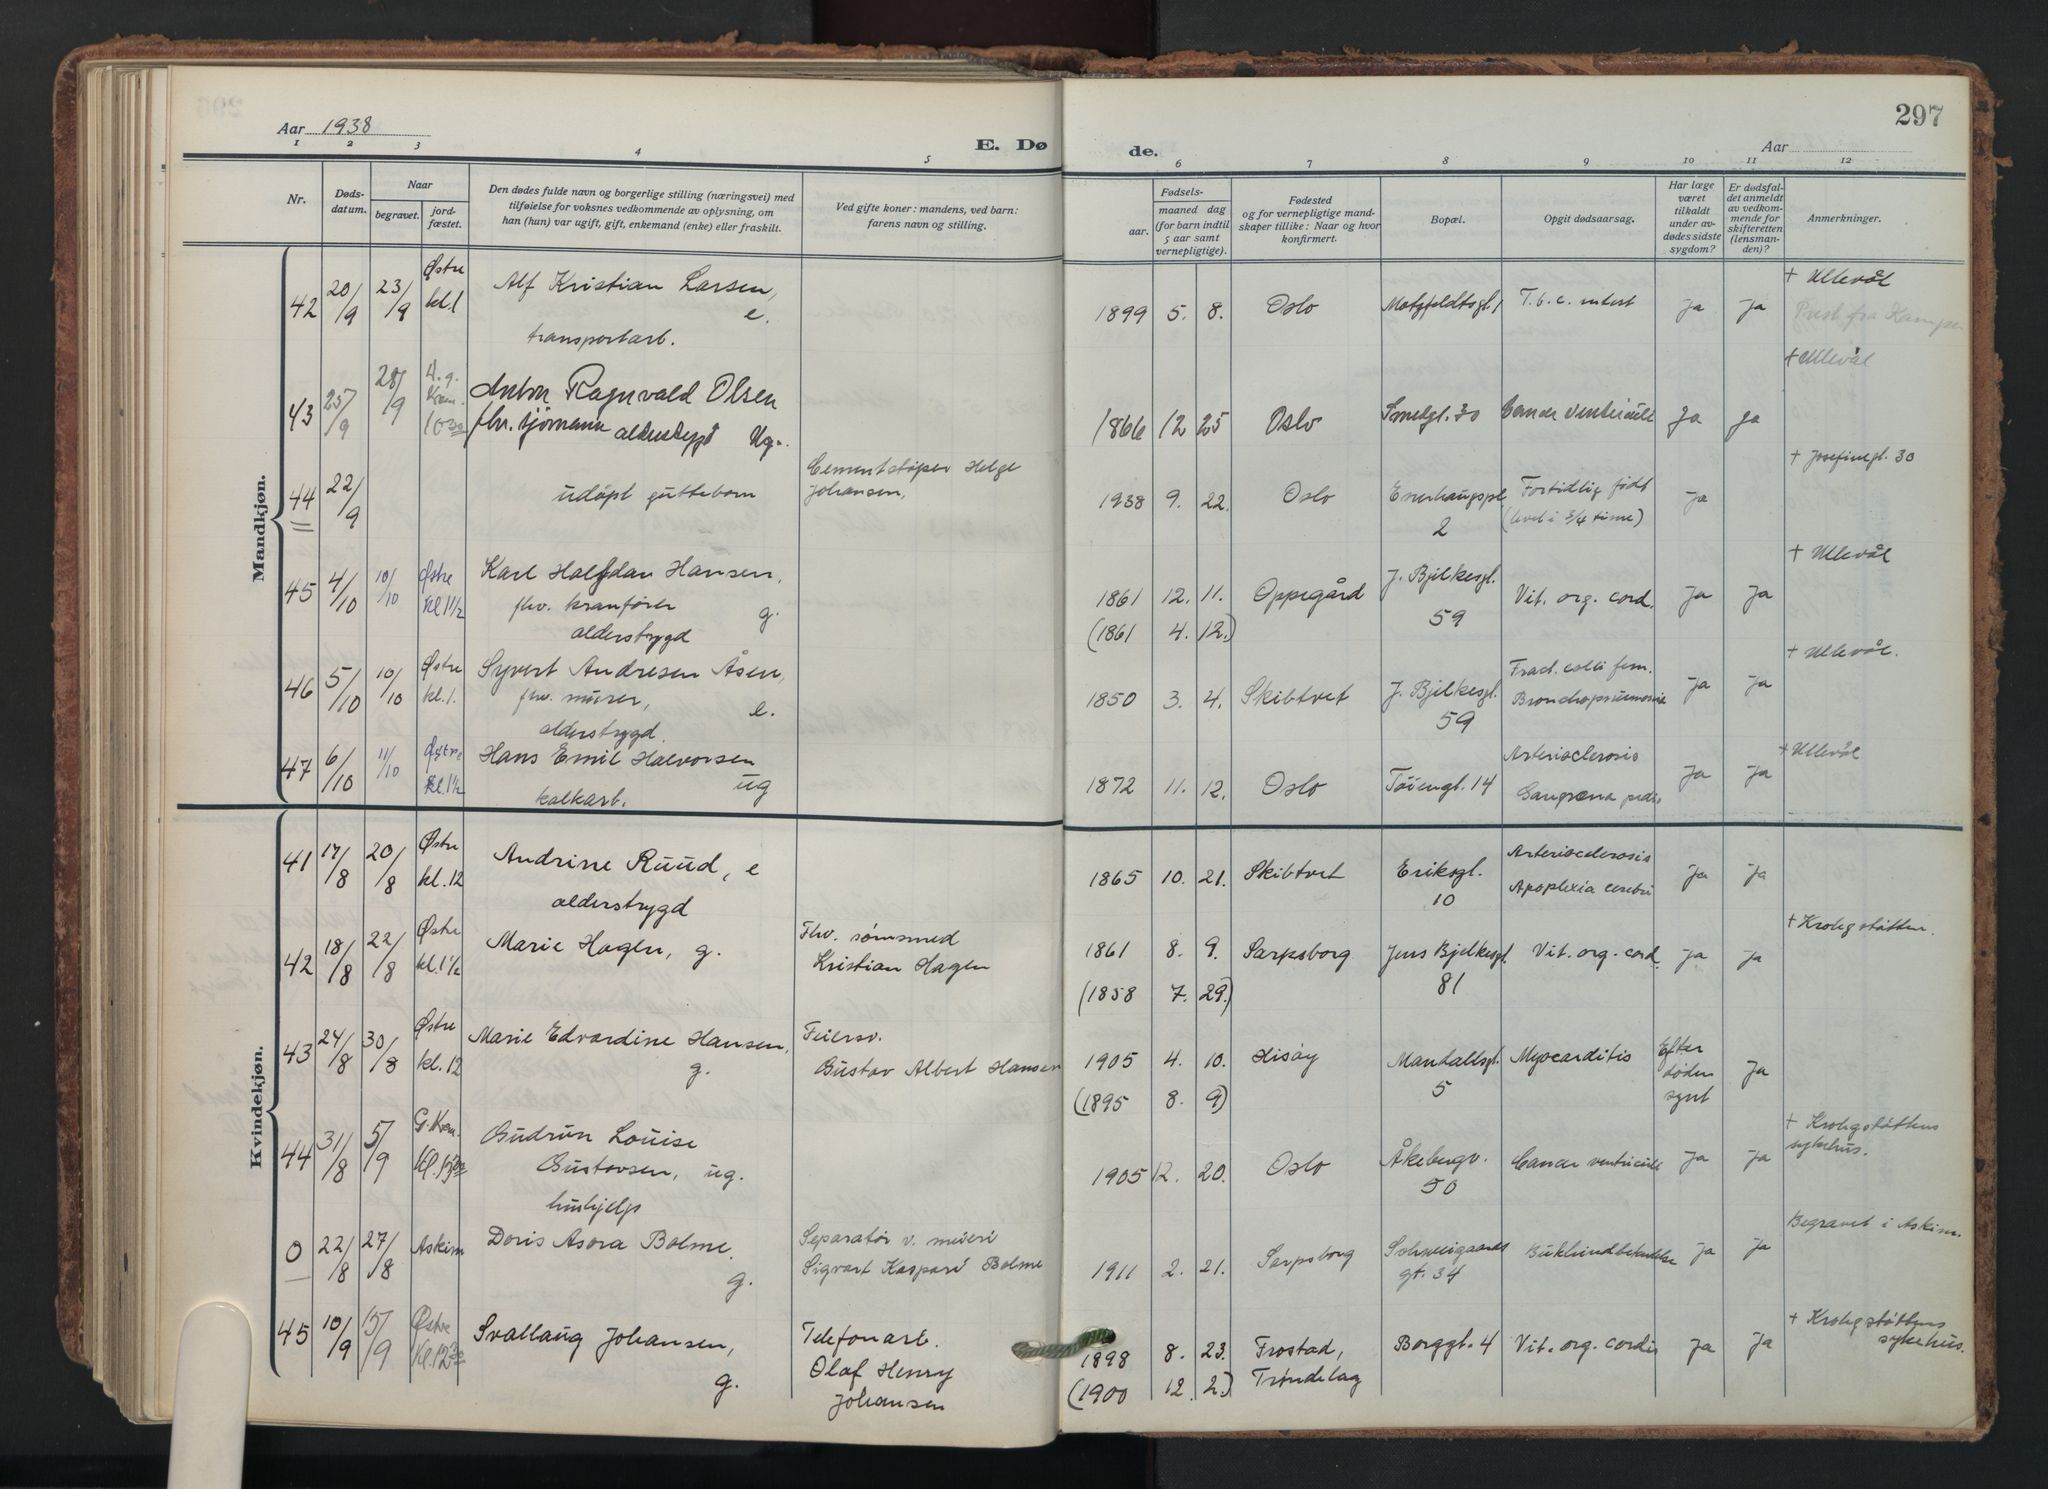 297
Aar 1938
E. Dø
de.
Aar
1 2 3 4 5 6 7 8 9 10 11 12
Nr.
Døds-
datum.
Naar
begravet.
jord-
fæstet.
Den dødes fulde navn og borgerlige stilling (næringsvei) med
tilføielse for voksnes vedkommende av oplysning, om
han (hun) var ugift, gift, enkemand (enke) eller fraskilt.
Ved gifte koner: mandens, ved barn:
farens navn og stilling.
Fødsels-
aar.
maaned dag
(for barn indtil
5 aar samt
vernepligtige).
Fødested
og for vernepligtige mand-
skaper tillike: Naar og hvor
konfirmert.
Bopæl.
Opgit dødsaarsag.
Har læge
været
tilkaldt
under av-
dødes sidste
sygdom?
Er dødsfal-
det anmeldt
av vedkom-
mende for
skifteretten
(lensman-
den)?
Anmerkninger.
Mandkjøn.
42 20/9 23/9 Østre kl. 1 Alf Kristian Larsen, e.
transportarb.
1899 5. 8. Oslo Motzfeldtsgt. 1 T.b.c. Ja Ja + Ullevål
Prest fra Kampen
43 25/9 28/9 Anton Ragnvald Olsen
fhv. sjømann alderstrygd Ug.
1866 12 25 Oslo Smedgt. 30 Cancer ventriculi Ja Ja + Ullevål
44 22/9 udøpt guttebarn Cementstøper Helge
Johansen,
1938 9. 22. Oslo Enerhaugspl. 2 Fortidlig født
(levet i 3/4 time) Ja + Josefinegt. 30
45 4/10 10/10 Østre kl. 1 1/2 Karl Halfdan Hansen,
fhv. kranfører g.
alderstrygd
1861 12. 11. Oppegård J. Bjelkesgt. 59 Vit. org. cord. Ja Ja + Ullevål
(1861 4. 12.)
46 5/10 10/10 Østre kl. 1. Syvert Andresen Åsen,
fhv. murer, e.
alderstrygd.
1850 3. 4. Skibtvet J. Bjelkesgt. 59 Fract. colli fem.
Bronchopneumonia Ja Ja + Ullevål.
47 6/10 11/10 Østre kl. 1 1/2 Hans Emil Halvorsen
kalkarb. ug
1872 11. 12. Oslo Tøiengt. 14 Arteriosclerosis
Gangræna pedis Ja Ja + Ullevål
Kvindekjøn.
41 17/8 20/8 Østre kl. 12 Andrine Ruud, e
alderstrygd
1865 10. 21. Skibtvet Eriksgt. 10 Arteriosclerosis
Apoplexia cerebri Ja Ja
42 18/8 22/8 Østre kl. 1 1/2 Marie Hagen, g. Fhv. sømsmed
Kristian Hagen
1861 8. 9. Sarpsborg Jens Bjelkesgt. 81 Vit. org. cord. Ja Ja + Krohgstøtten.
(1858 7. 29.)
43 24/8 30/8 Østre kl. 12 Marie Edvardine Hansen,
g. Feiersv.
Gustav Albert Hansen
1905 4. 10. Hisøy Mandallsgt. 5 Myocarditis Efter
døden
synt Ja
(1895 8. 9)
44 31/8 5/9 G. Krem. Gudrun Louise
Gustavsen, ug.
hushjelp
1905 12. 20. Oslo Åkebergv. 50 Cancer ventriculi Ja Ja + Krohgstøttens
sykehus.
0 22/8 27/8 Askim Doris Asora Bolme.
g. Separatør v. meieri
Sigvart Kaspare Bolme
1911 2. 21. Sarpsborg Schweigaards
gt. 34 Bukhindbetendelse Ja Ja Begravet i Askim.
45 10/9 15/9 Østre Svallaug Johansen,
g. Telefonarb.
Olaf Henry
Johansen
1898 8. 23. Frostad,
Trøndelag Borggt. 4 Vit. org. cordis Ja Ja + Krohgstøttens
sykehus.
(1900 12. 2.)